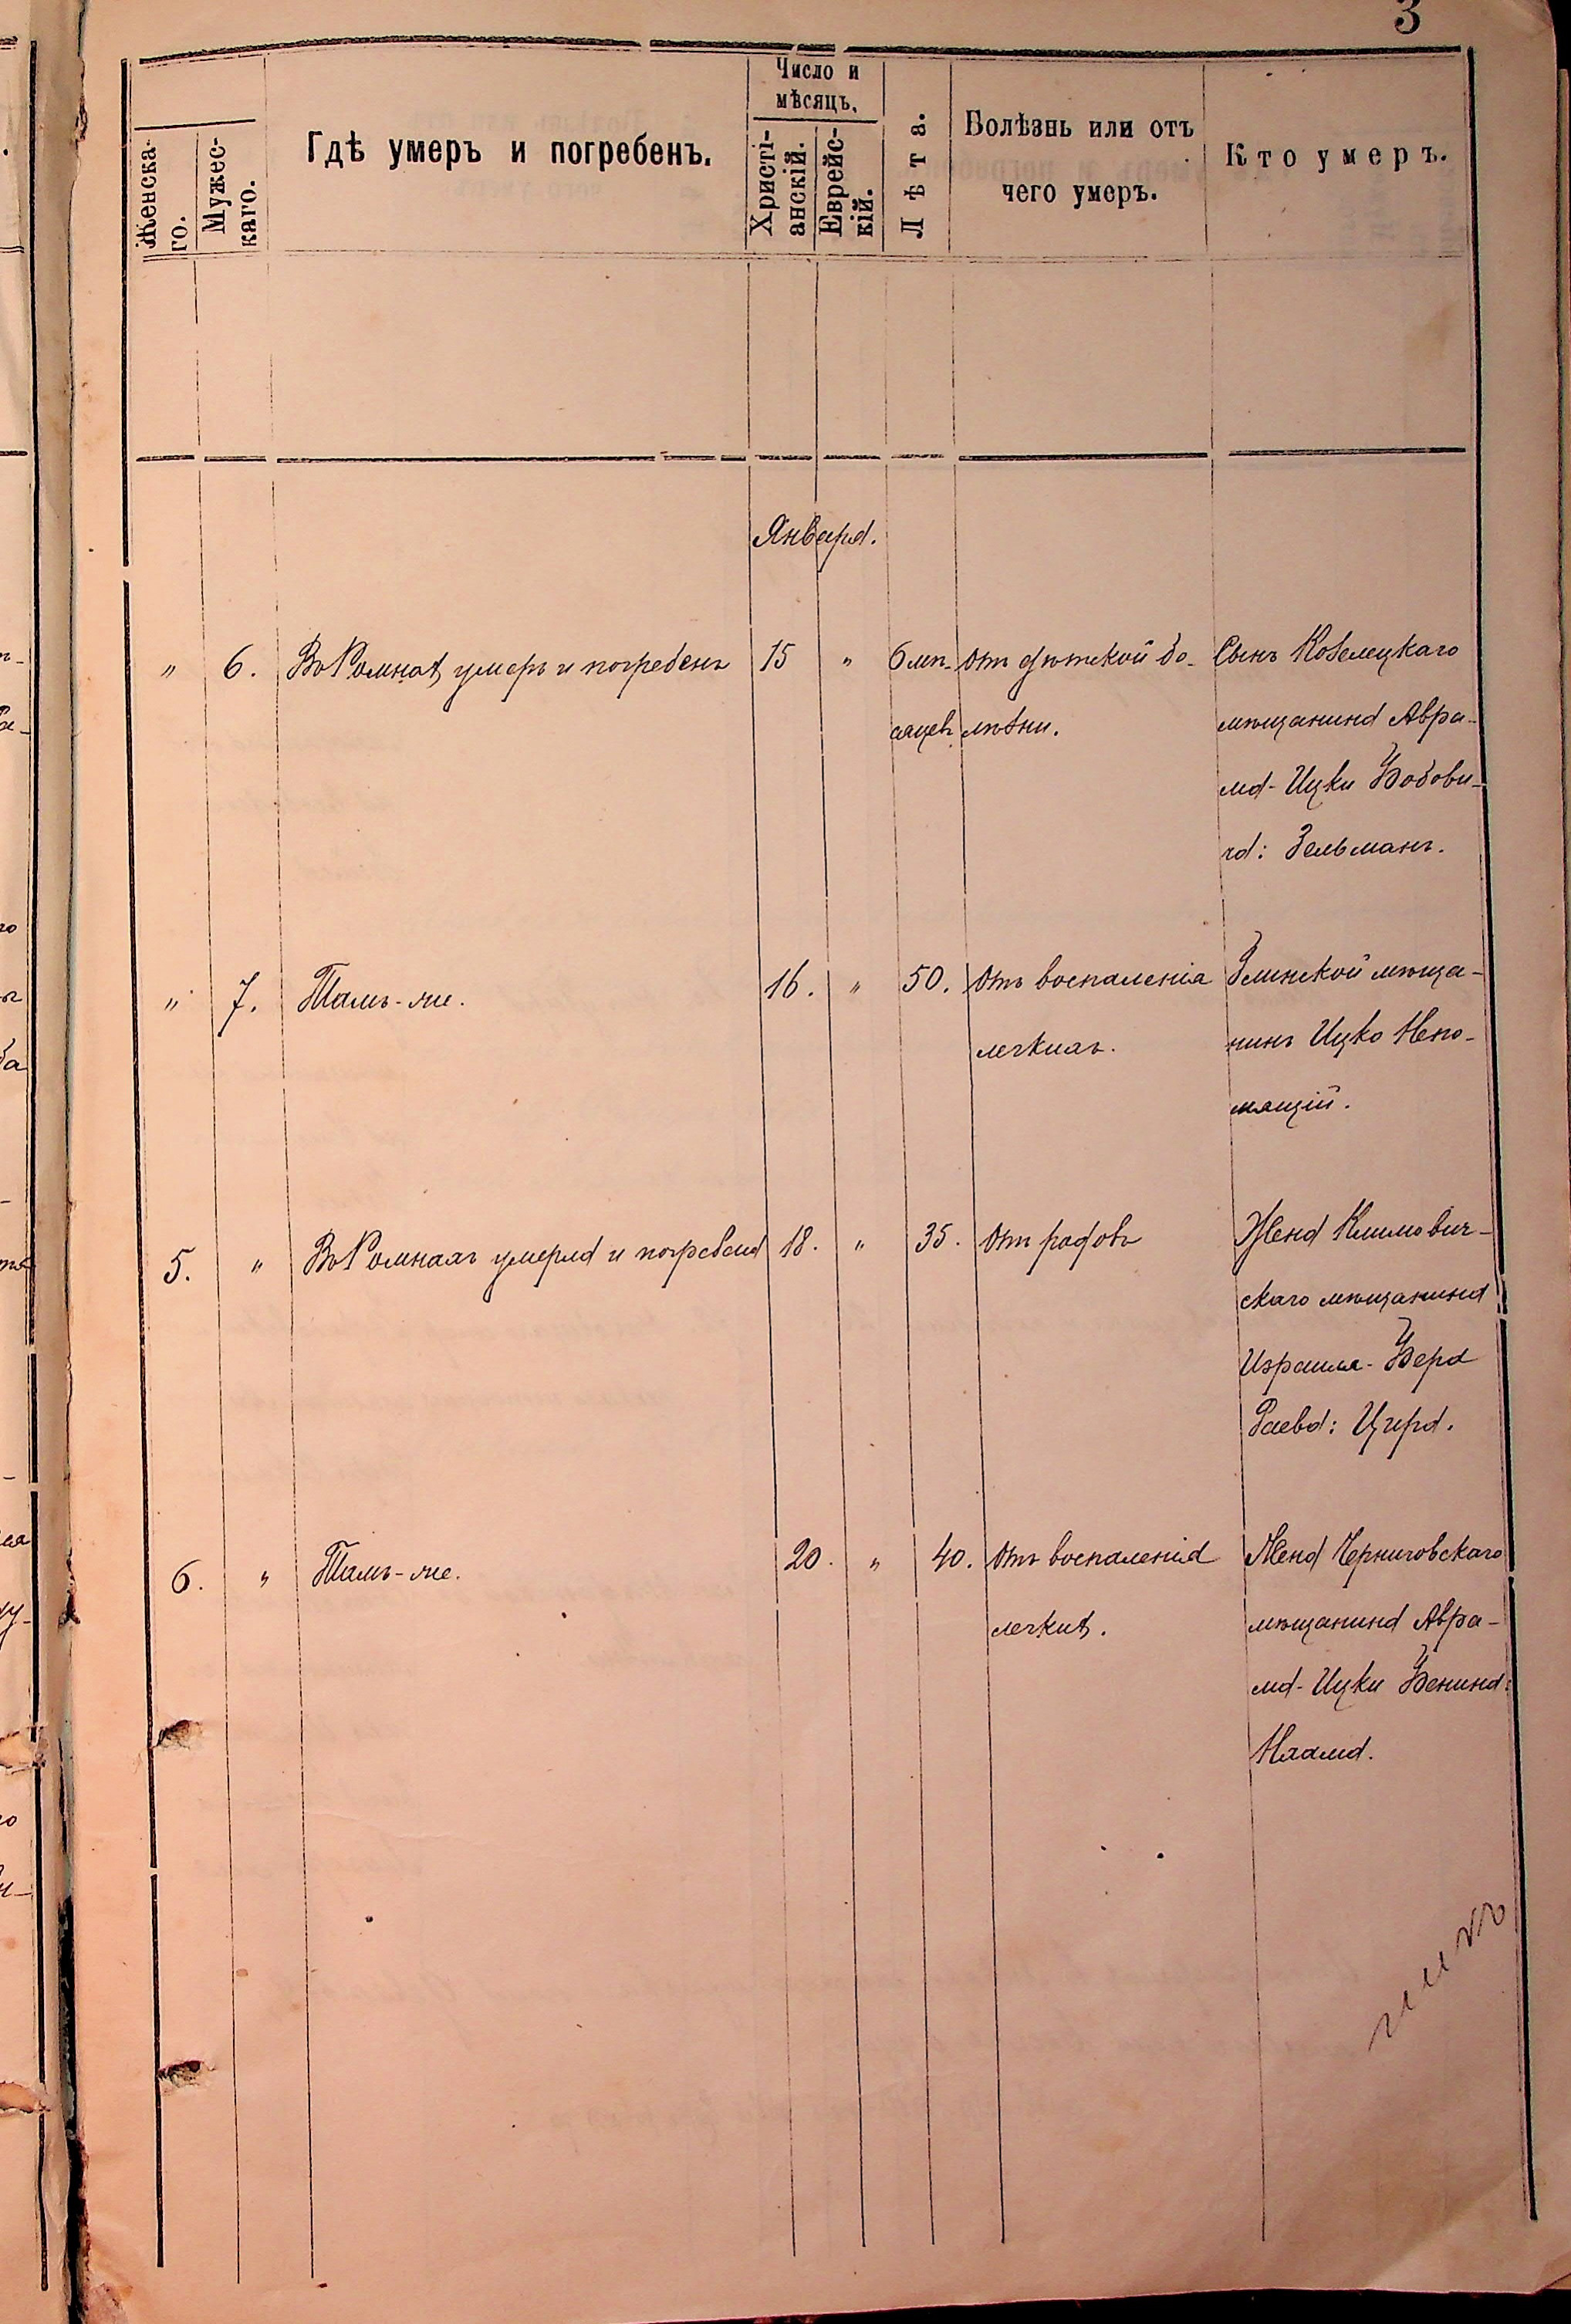 3
Женска-
го.
Мужес-
каго.
Гдѣ умеръ и погребенъ.
Число и
мѣсяцъ.
Христі-
анскій.
Еврейс-
кій.
Лѣта.
Болѣзнь или отъ
чего умеръ.
Кто умеръ.
Января.
" 6. Въ Ромнахъ умеръ и погребенъ 15 " 6 мѣ- отъ дѣтской бо- Сынъ Козелецкаго
сяцевъ лѣзни. мѣщанина Авра-
ма-Ицки Бобови-
ча: Зельманъ.
" 7. Тамъ-же. 16. " 50. отъ воспаленія Глинской мѣща-
легкихъ. нинъ Ицко Непо-
мящій.
5. " Въ Ромнахъ умерла и погребена 18. " 35. отъ родовъ Жена Климович-
скаго мѣщанина
Израиля-Бера
Раева: Цира.
6. " Тамъ-же. 20. " 40. отъ воспаленія Жена Черниговскаго
мѣщанина Авра-
ма-Ицки Бенина:
Нахама.